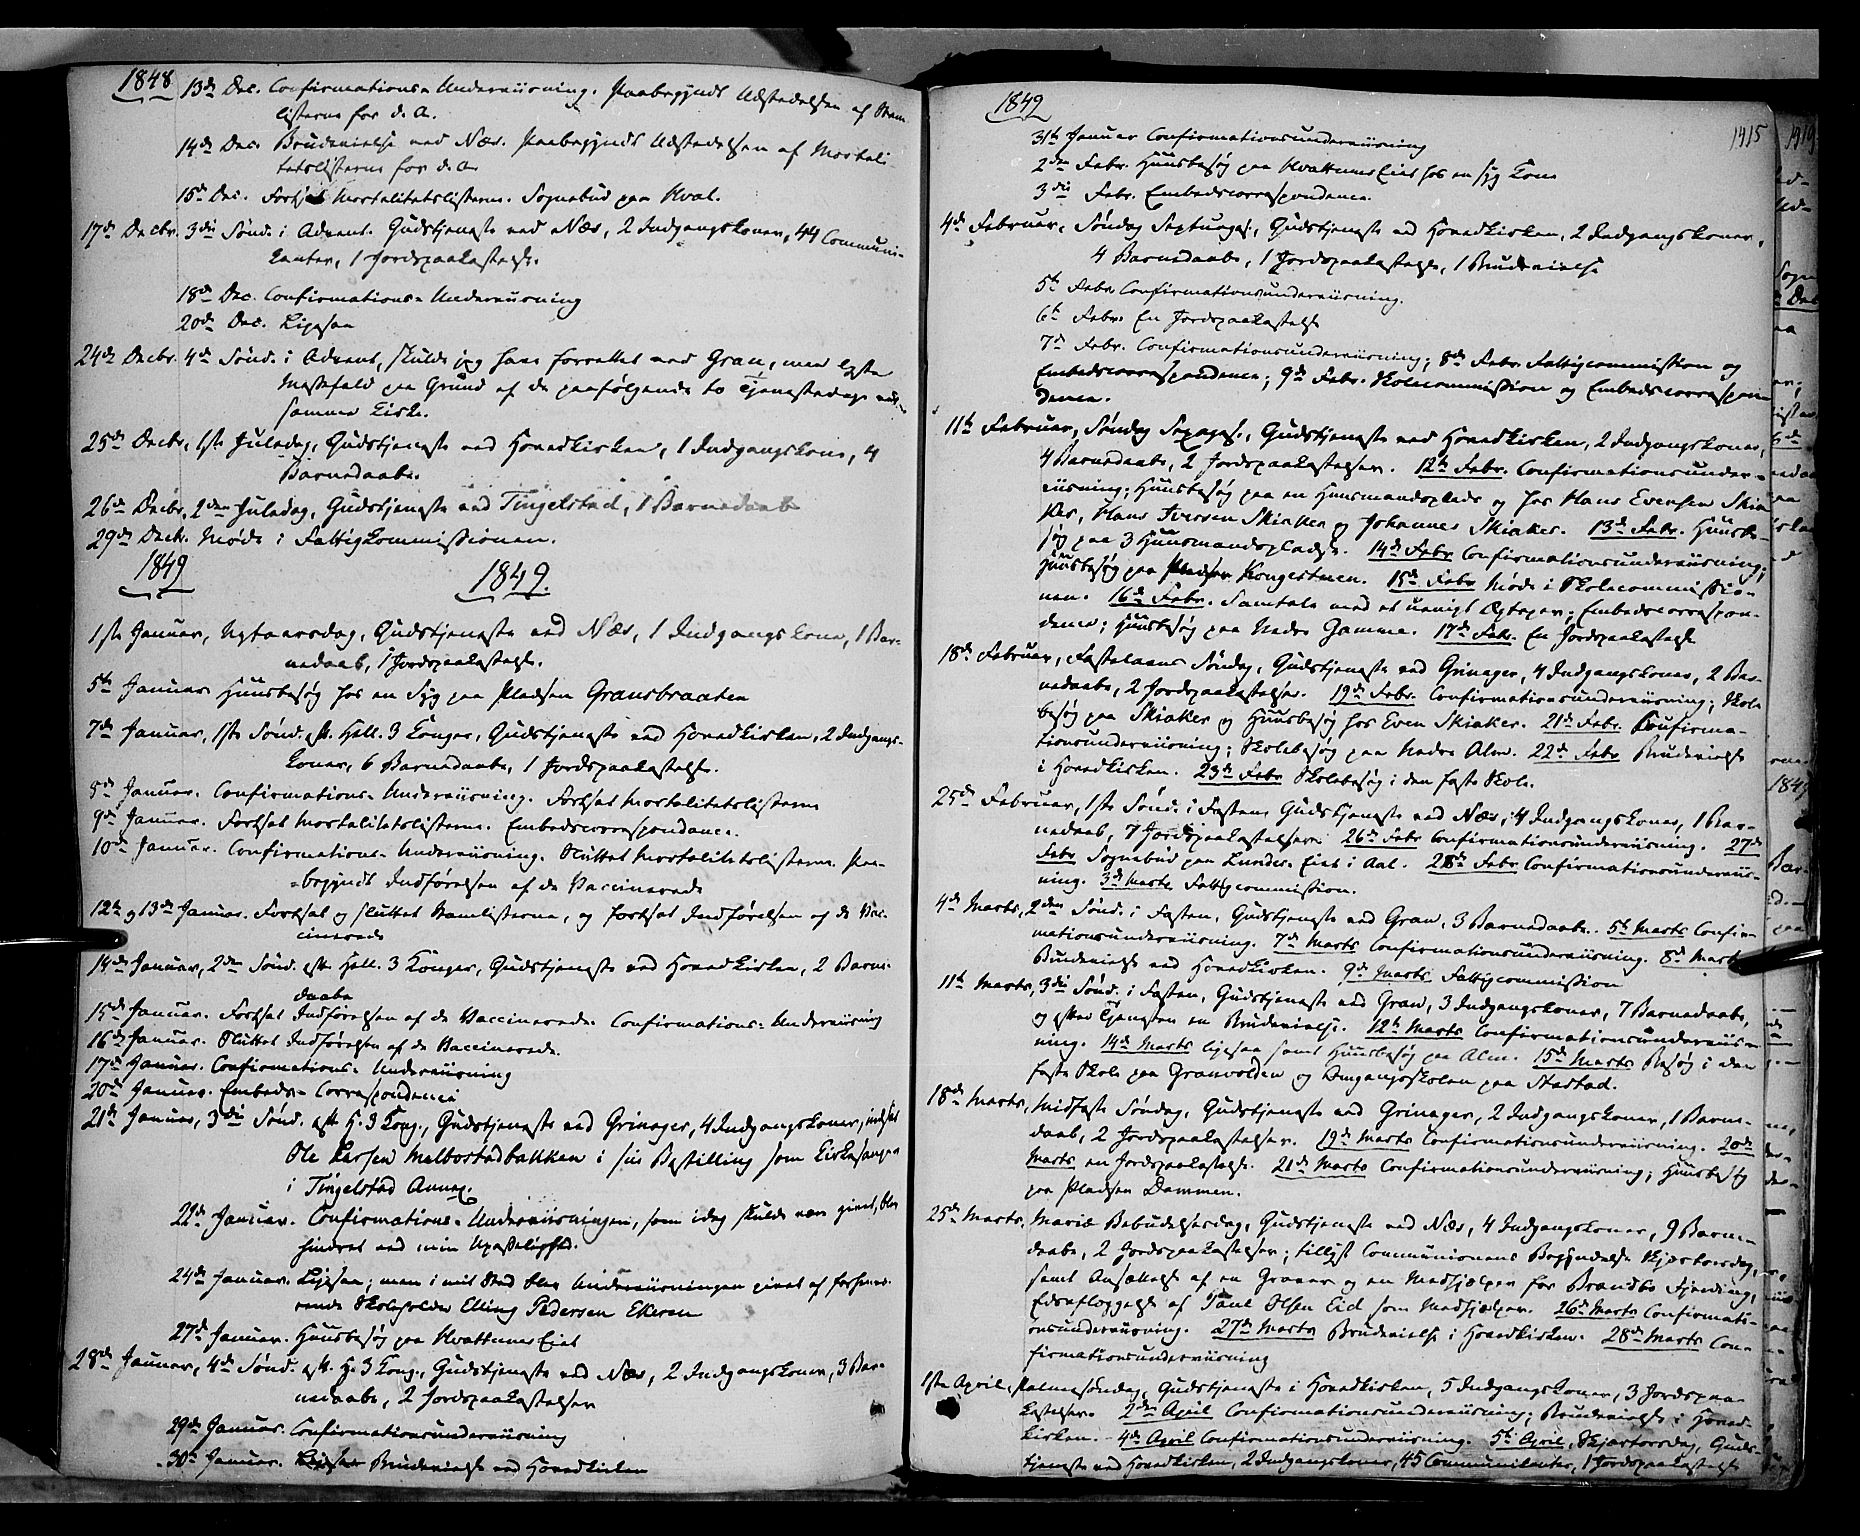 1848
13de Dec. Confirmations-Underviisning. Paabegyndt Udstedelsen af Mand-
listerne for d. A.
14de Dec. Brudevielse ved Næs. Paabegyndt Udstedelsen af Mortali-
tetslisterne for d. A.
15de Dec. Fortsat Mortalitetslisterne. Sognebud paa Hval.
17de Decbr. 3die Sønd. i Advent. Gudstjeneste ved Næs, 2 Indgangskoner, 44 Communi-
kanter, 1 Jordspaakastelse.
18de Dec. Confirmations-Underviisning
20de Dec. Ligesaa
24de Decbr. 4de Sønd. i Advent, skulde jeg have forrettet ved Gran, men lyste
Messefald paa Grund af de paafølgende to Tjenestedage ved
samme Kirke.
25de Decbr. 1ste Juledag, Gudstjeneste ved Hovedkirken, 1 Indgangskone, 4
Barnedaabe.
26de Decbr. 2den Juledag, Gudstjeneste ved Tingelstad, 1 Barnedaab
29de Decbr. Møde i Fattigkommissionen.
1849 1849.
1ste Januar, Nytaarsdag, Gudstjeneste ved Næs, 1 Indgangskone, 1 Bar-
nedaab, 1 Jordspaakastelse.
5te Januar Huusbesøg hos en Syg paa Pladsen Gransbraaten
7de Januar, 1ste Sønd. eft. Hell. 3 Konger, Gudstjeneste ved Hovedkirken, 2 Indgangs-
koner, 6 Barnedaabe, 1 Jordspaakastelse.
8de Januar. Confirmations-Underviisning. Fortsat Mortalitetslisterne
9de Januar. Fortsat Mortalitetslisterne. Embedscorrespondance.
10de Januar. Confirmations-Underviisning. Sluttet Mortalitetslisterne. Paa-
begyndt Indførelsen af de Vaccinerede
12te og 13de Januar. Fortsat og sluttet Mandlisterne, og fortsat Indførelsen og de Vac-
cinerede
14de Januar, 2den Sønd. eft. Hell. 3 Konger, Gudstjeneste ved Hovedkirken, 2 Barne-
daabe
15de Januar. Fortsat Indførelsen af de Vaccinerede. Confirmations-Underviisning
16de Januar. Sluttet Indførelsen af de Vaccinerede.
17de Januar. Confirmations-Underviisning
20de Januar. Embeds-Correspondence
21de Januar, 3die Sønd. eft. H. 3 Kong., Gudstjeneste ved Grinager, 4 Indgangskoner, indsat
Ole Larsen Melbostadbakken i sin Bestilling som Kirkesanger
i Tingelstad Annex.
22de Januar. Confirmations-Underviisningen, som idag skulde være givet, blev
hindret ved min Upasselighed.
24de Januar. Ligesaa; men i mit Sted blev Underviisningen givet af forhenvæ-
rende Skoleholder Elling Pedersen Ekeren
27de Januar. Huusbesøg paa Hvattums Eiet
28de Januar, 4de Sønd. eft. H. 3 Kong., Gudstjeneste ved Næs, 2 Indgangskoner, 3 Bar-
nedaabe, 2 Jordspaakastelser
29de Januar. Confirmationsunderviisning
30te Januar. Brudevielse ved Hovedkirken
1849
1415
31te Januar Confirmationsunderviisning
2den Febr. Huusbesøg paa Hvattums Eiet hos en syg Kone
3die Febr. Embedscorrespondence.
4de Februar, Søndag Septuages., Gudstjeneste ved Hovedkirken, 2 Indgangskoner,
4 Barnedaabe, 1 Jordspaakastelse, 1 Brudevielse
5te Febr. Confirmationsunderviisning.
6te Febr. En Jordspaakastelse
7de Febr. Confirmationsunderviisning; 8de Febr. Fattigcommission og
Embedscorrespondence; 9de Febr. Skolecommission og Embedscorrespon-
dence.
11te Februar, Søndag Sexages., Gudstjeneste ved Hovedkirken, 2 Indgangskoner,
4 Barnedaabe, 2 Jordspaakastelser. 12te Febr. Confirmationsunder-
viisning; Huusbesøg paa en Huusmandsplads og hos Hans Evensen Skia-
ker, Hans Iversen Skiaker og Johannes Skiaker. 13de Febr. Huusbe-
søg paa 3 Huusmandspladse. 14de Febr. Confirmationsunderviisning;
Huusbesøg paa Pladsen Kongestuen. 15de Febr. Møde i Skolecommissio-
nen. 16de Febr. Samtale med et uenigt Ægtepar; Embedscorrespon-
dence; Huusbesøg paa Nedre Gamme. 17de Febr. En Jordspaakastelse
18de Februar, Fastelavns Søndag, Gudstjeneste ved Grinager, 4 Indgangskoner, 2 Bar-
nedaabe, 2 Jordspaakastelser. 19de Febr. Confirmationsunderviisning; Skole-
besøg paa Skiaker og Huusbesøg hos Even Skiaker. 21de Febr. Confirma-
tionsunderviisning; Skolebesøg paa Nedre Alm. 22de Febr. Brudevielse
i Hovedkirken. 23de Febr. Skolebesøg i den faste Skole.
25de Februar, 1ste Sønd. i Fasten, Gudstjeneste ved Næs, 4 Indgangskoner, 1 Bar-
nedaab, 7 Jordspaakastelser. 26de Febr. Confirmationsunderviisning. 27de
Febr. Sognebud paa Lunder-Eiet i Aal. 28de Febr. Confirmationsunderviis-
ning. 3die Marts Fattigcommission.
4de Marts, 2den Sønd. i Fasten, Gudstjeneste ved Gran, 3 Barnedaabe. 5te Marts Confir-
mationsunderviisning. 7de Marts Confirmationsunderviisning. 8de Marts
Brudevielse ved Hovedkirken. 9de Marts Fattigcommission
11te Marts, 3die Sønd. i Fasten, Gudstjeneste ved Gran, 3 Indgangskoner, 7 Barnedaabe,
og efter Tjenesten en Brudevielse. 12te Marts Confirmationsunderviis-
ning. 14de Marts ligesaa samt Huusbesøg paa Alm. 15de Marts Besøg i den
faste Skole paa Granvolden og Omgangsskolen paa Stastad.
18de Marts, Midfaste Søndag, Gudstjeneste ved Grinager, 2 Indgangskoner, 1 Barne-
daab, 2 Jordspaakastelser. 19de Marts Confirmationsunderviisning. 20de
Marts en Jordspaakastelse. 21de Marts Confirmationsunderviisning; Huusbesøg
paa Pladsen Dammen.
25de Marts, Mariæ Bebudelsesdag, Gudstjeneste ved Næs, 4 Indgangskoner, 9 Barne-
daabe, 2 Jordspaakastelser; tillyst Communionens Begyndelse Skjertorsdag,
samt Ansættelse af en Graver og en Medhjælper for Brandbo Fjerding,
Edsaflæggelse af Poul Olsen Eid som Medhjælper. 26de Marts Confirmati-
onsunderviisning. 27de Marts Brudevielse i Hovedkirken. 28de Marts Con-
firmationsunderviisning
1ste April, Palmesøndag, Gudstjeneste i Hovedkirken, 5 Indgangskoner, 3 Jordspaa-
kastelser. 2den April Confirmationsunderviisning; Brudevielse i Hoved-
kirken. 4de April Confirmationsunderviisning. 5te April, Skjertorsdag, Guds-
tjeneste ved Hovedkirken, 2 Indgangskoner, 45 Communikanter, 1 Jordspaakastelse